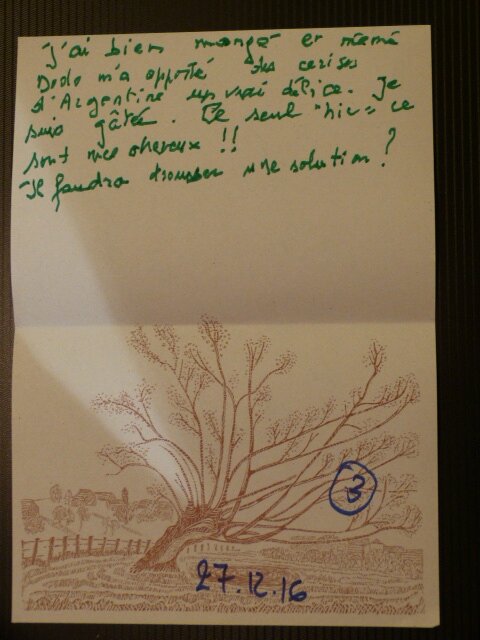 J'ai bien mangé et même
Dodo m'a apporté des cerises
d'Argentine un vrai délice. Je
suis gâtée. Le seul "hic" ce
sont mes cheveux !!
Il faudra trouver une solution ?
3
27.12.16